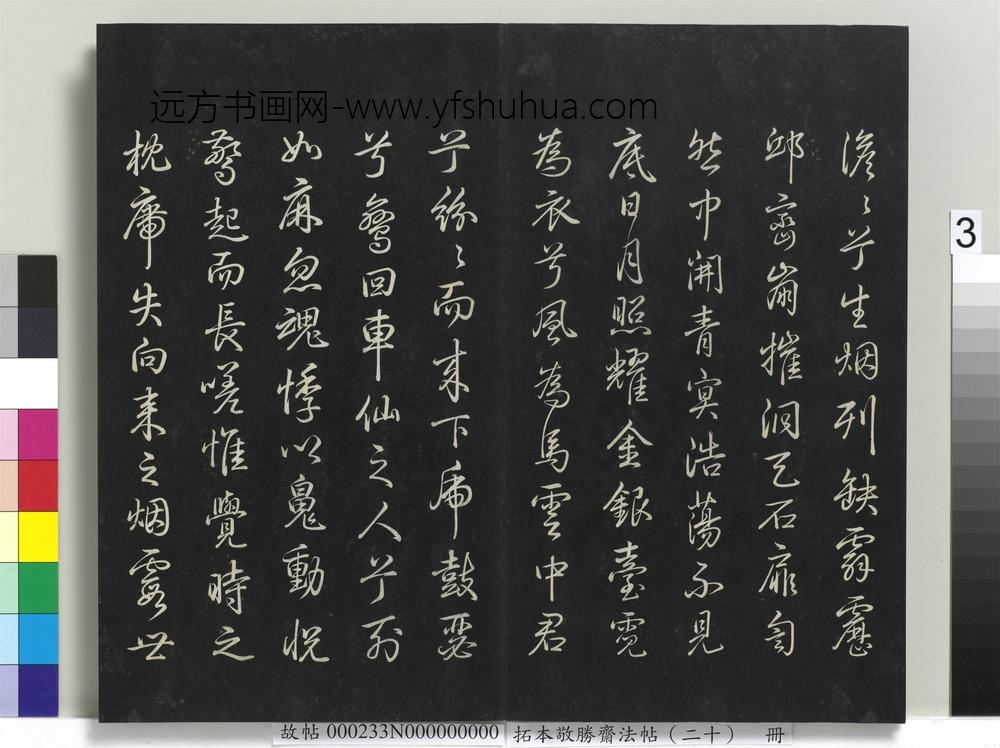 远方书画网-www.yfshuhua.com
澹〻兮生烟列缺霹靂
邱巒崩摧洞天石扉訇
然中開青冥浩蕩不見
底日月照耀金銀臺霓
為衣兮風為馬雲中君
兮紛〻而來下虎鼓瑟
兮鸞回車仙之人兮列
如麻忽魂悸以魄動怳
驚起而長嗟惟覺時之
枕席失向來之烟霞世
3
故帖 000233N000000000 拓本敬勝齋法帖（二十） 冊